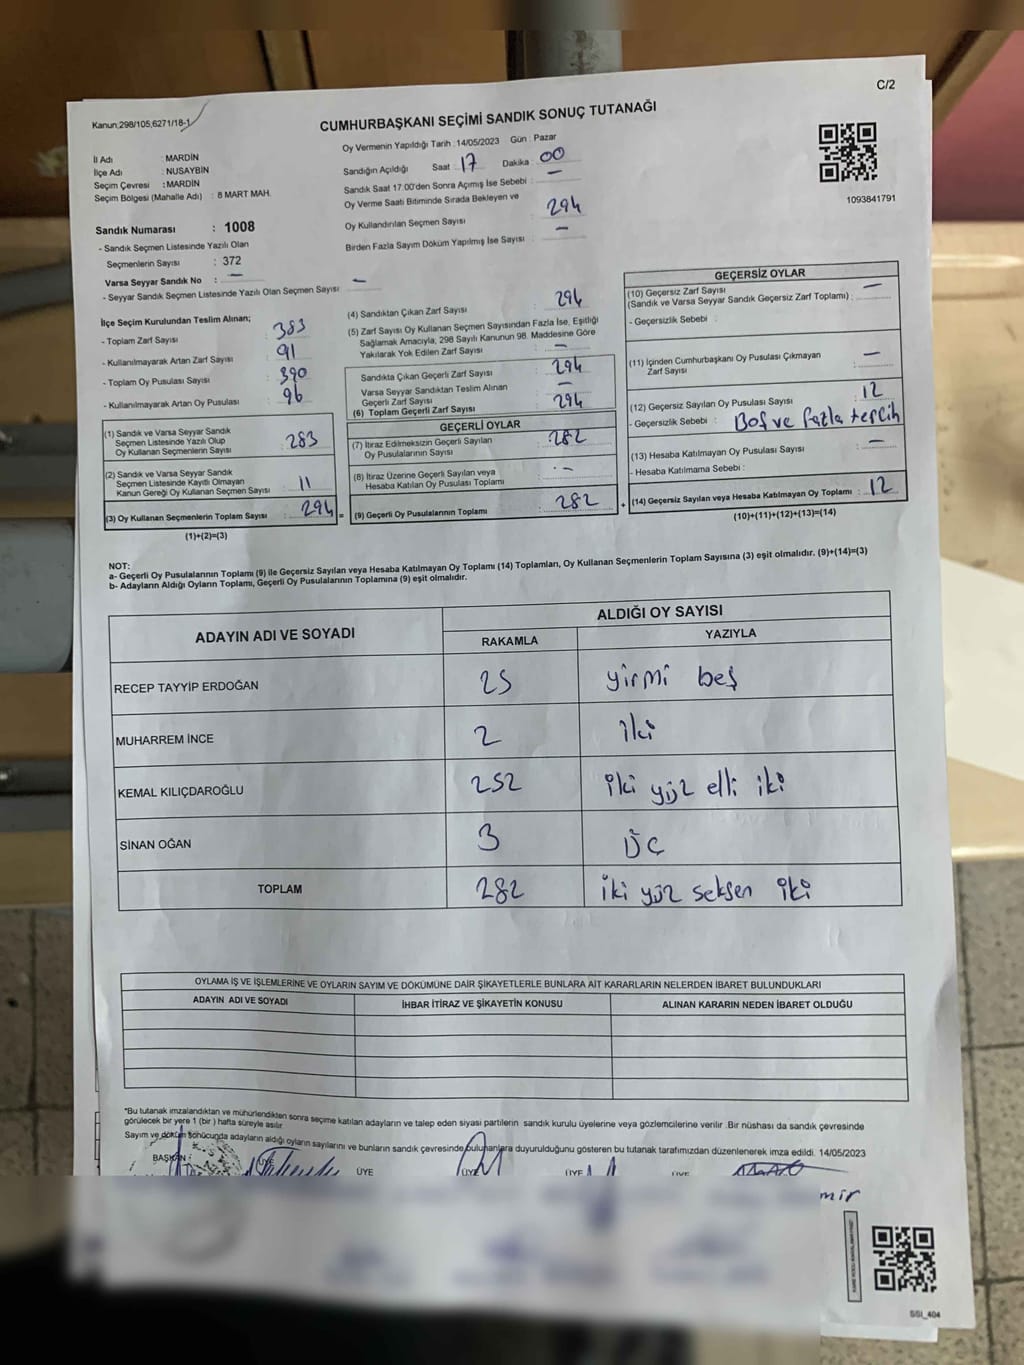 C/2
Kanun,298/105,6271/18-1
CUMHURBAŞKANI SEÇİMİ SANDIK SONUÇ TUTANAĞI
İl Adı : MARDİN
İlçe Adı : NUSAYBİN
Seçim Çevresi : MARDİN
Seçim Bölgesi (Mahalle Adı) : 8 MART MAH.
Oy Vermenin Yapıldığı Tarih : 14/05/2023 Gün : Pazar
Sandığın Açıldığı Saat : 17 Dakika : 00
Sandık Saat 17.00'den Sonra Açımış İse Sebebi : —
Oy Verme Saati Bitiminde Sırada Bekleyen ve
Oy Kullandırılan Seçmen Sayısı : 294
Birden Fazla Sayım Döküm Yapılmış İse Sayısı : —
1093841791
Sandık Numarası : 1008
- Sandık Seçmen Listesinde Yazılı Olan
Seçmenlerin Sayısı : 372
Varsa Seyyar Sandık No : —
- Seyyar Sandık Seçmen Listesinde Yazılı Olan Seçmen Sayısı : —
İlçe Seçim Kurulundan Teslim Alınan;
- Toplam Zarf Sayısı : 383
- Kullanılmayarak Artan Zarf Sayısı : 91
- Toplam Oy Pusulası Sayısı : 390
- Kullanılmayarak Artan Oy Pusulası : 96
(1) Sandık ve Varsa Seyyar Sandık
Seçmen Listesinde Yazılı Olup
Oy Kullanan Seçmenlerin Sayısı : 283
(2) Sandık ve Varsa Seyyar Sandık
Seçmen Listesinde Kayıtlı Olmayan
Kanun Gereği Oy Kullanan Seçmen Sayısı : 11
(3) Oy Kullanan Seçmenlerin Toplam Sayısı : 294 =
(1)+(2)=(3)
(4) Sandıktan Çıkan Zarf Sayısı : 294
(5) Zarf Sayısı Oy Kullanan Seçmen Sayısından Fazla İse, Eşitliği
Sağlamak Amacıyla, 298 Sayılı Kanunun 98. Maddesine Göre
Yakılarak Yok Edilen Zarf Sayısı : —
Sandıkta Çıkan Geçerli Zarf Sayısı : 294
Varsa Seyyar Sandıktan Teslim Alınan
Geçerli Zarf Sayısı : —
(6) Toplam Geçerli Zarf Sayısı : 294
GEÇERLİ OYLAR
(7) İtiraz Edilmeksizin Geçerli Sayılan
Oy Pusulalarının Sayısı : 282
(8) İtiraz Üzerine Geçerli Sayılan veya
Hesaba Katılan Oy Pusulası Toplamı : —
(9) Geçerli Oy Pusulalarının Toplamı : 282 +
GEÇERSİZ OYLAR
(10) Geçersiz Zarf Sayısı
(Sandık ve Varsa Seyyar Sandık Geçersiz Zarf Toplamı) : —
- Geçersizlik Sebebi :
(11) İçinden Cumhurbaşkanı Oy Pusulası Çıkmayan
Zarf Sayısı : —
(12) Geçersiz Sayılan Oy Pusulası Sayısı : 12
- Geçersizlik Sebebi : Boş ve fazla tercih
(13) Hesaba Katılmayan Oy Pusulası Sayısı : —
- Hesaba Katılmama Sebebi :
(14) Geçersiz Sayılan veya Hesaba Katılmayan Oy Toplamı : 12
(10)+(11)+(12)+(13)=(14)
NOT:
a- Geçerli Oy Pusulalarının Toplamı (9) ile Geçersiz Sayılan veya Hesaba Katılmayan Oy Toplamı (14) Toplamları, Oy Kullanan Seçmenlerin Toplam Sayısına (3) eşit olmalıdır. (9)+(14)=(3)
b- Adayların Aldığı Oyların Toplamı, Geçerli Oy Pusulalarının Toplamına (9) eşit olmalıdır.
ADAYIN ADI VE SOYADI ALDIĞI OY SAYISI
RAKAMLA YAZIYLA
RECEP TAYYİP ERDOĞAN 25 yirmi beş
MUHARREM İNCE 2 iki
KEMAL KILIÇDAROĞLU 252 iki yüz elli iki
SİNAN OĞAN 3 üç
TOPLAM 282 iki yüz seksen iki
OYLAMA İŞ VE İŞLEMLERİNE VE OYLARIN SAYIM VE DÖKÜMÜNE DAİR ŞİKAYETLERLE BUNLARA AİT KARARLARIN NELERDEN İBARET BULUNDUKLARI
ADAYIN ADI VE SOYADI İHBAR İTİRAZ VE ŞİKAYETİN KONUSU ALINAN KARARIN NEDEN İBARET OLDUĞU
*Bu tutanak imzalandıktan ve mühürlendikten sonra seçime katılan adayların ve talep eden siyasi partilerin sandık kurulu üyelerine veya gözlemcilerine verilir .Bir nüshası da sandık çevresinde
görülecek bir yere 1 (bir ) hafta süreyle asılır.
Sayım ve döküm sonucunda adayların aldığı oyların sayılarını ve bunların sandık çevresinde bulunanlara duyurulduğunu gösteren bu tutanak tarafımızdan düzenlenerek imza edildi. 14/05/2023
BAŞKAN ÜYE ÜYE ÜYE ÜYE ÜYE
SSI_404